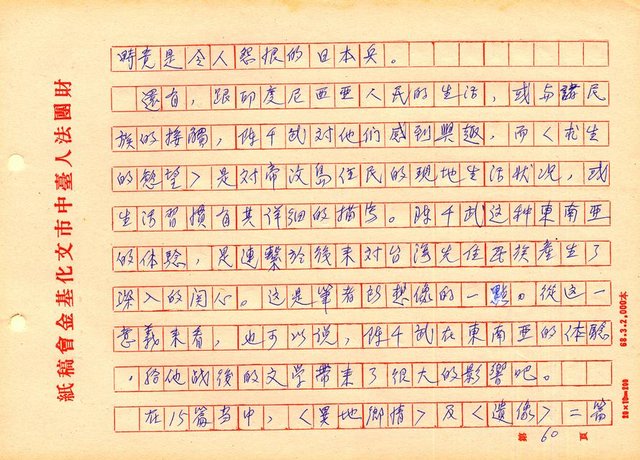 時竟是令人怨恨的日本兵。
還有，跟印度尼西亜人民的生活，或与諸民
族的接觸，陈千武对他们感到興趣，而〈求生
的慾望〉是对帝汶島住民的現地生活狀况，或
生活習慣有其详细的描写。陈千武这种東南亜
的体验，是連繫於後来对台湾先住民族產生了
深入的関心。这是筆者所想像的一點。從这一
意義来看，也可以说，陈千武在東南亜的体验
，给他战後的文学帶来了很大的影響吧。
在15篇当中，〈異地鄉情〉及〈遺像〉二篇
財團法人臺中市文化基金會稿紙
68.3.2,000本
20×10=200
第 60 頁